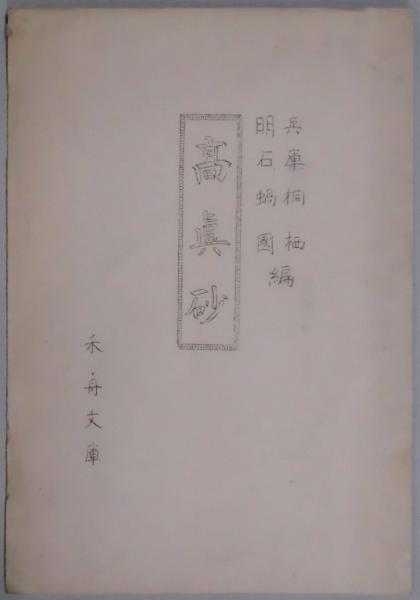 兵庫桐栖
明石蝸國
編
高眞砂
禾舟文庫